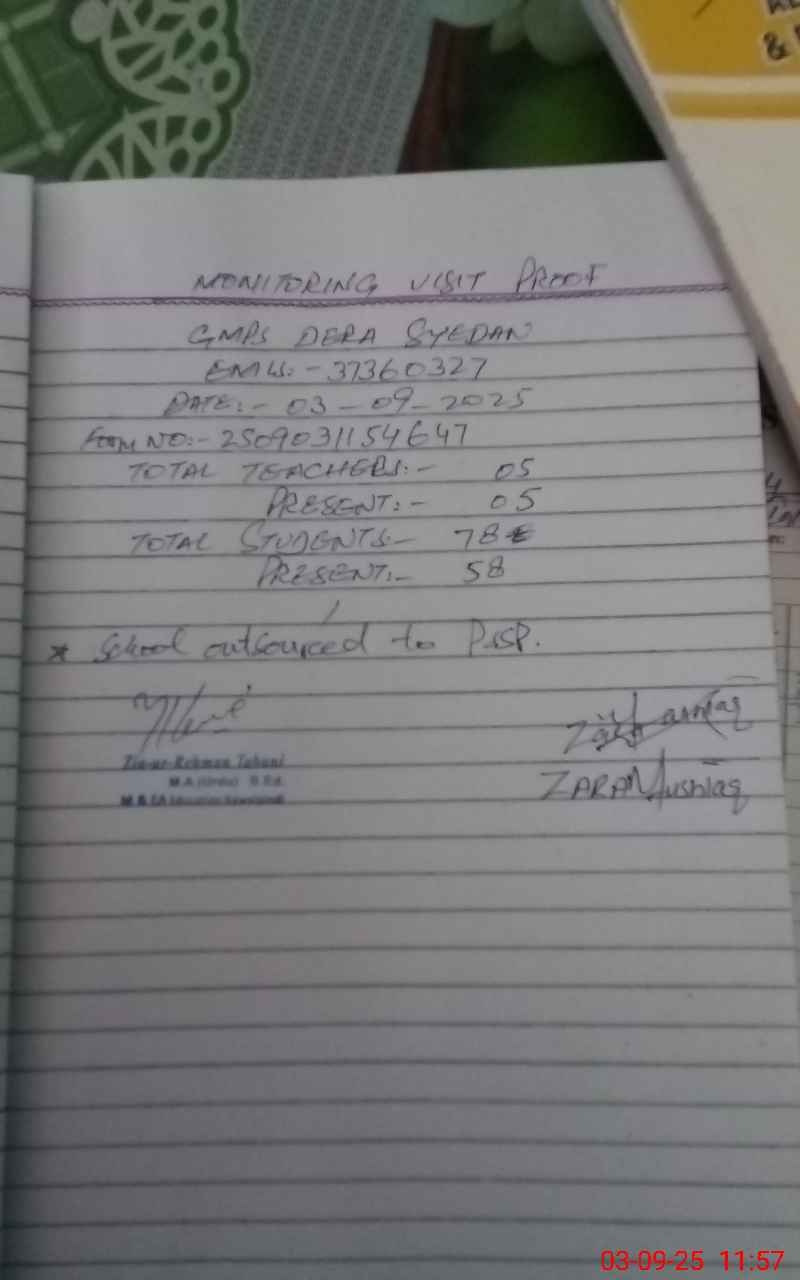 & 
MONITORING VISIT PROOF
GMPS DERA SYEDAN
EMIS:- 37360327
DATE:- 03-09-2025
FORM NO:- 2509031154647
TOTAL TEACHERS:- 05
PRESENT:- 05
TOTAL STUDENTS:- 78
PRESENT:- 58
* School outsourced to PSSP.
Zia-ur-Rehman
M.A (Urdu) B.Ed.
ZARAN
03-09-25 11:57